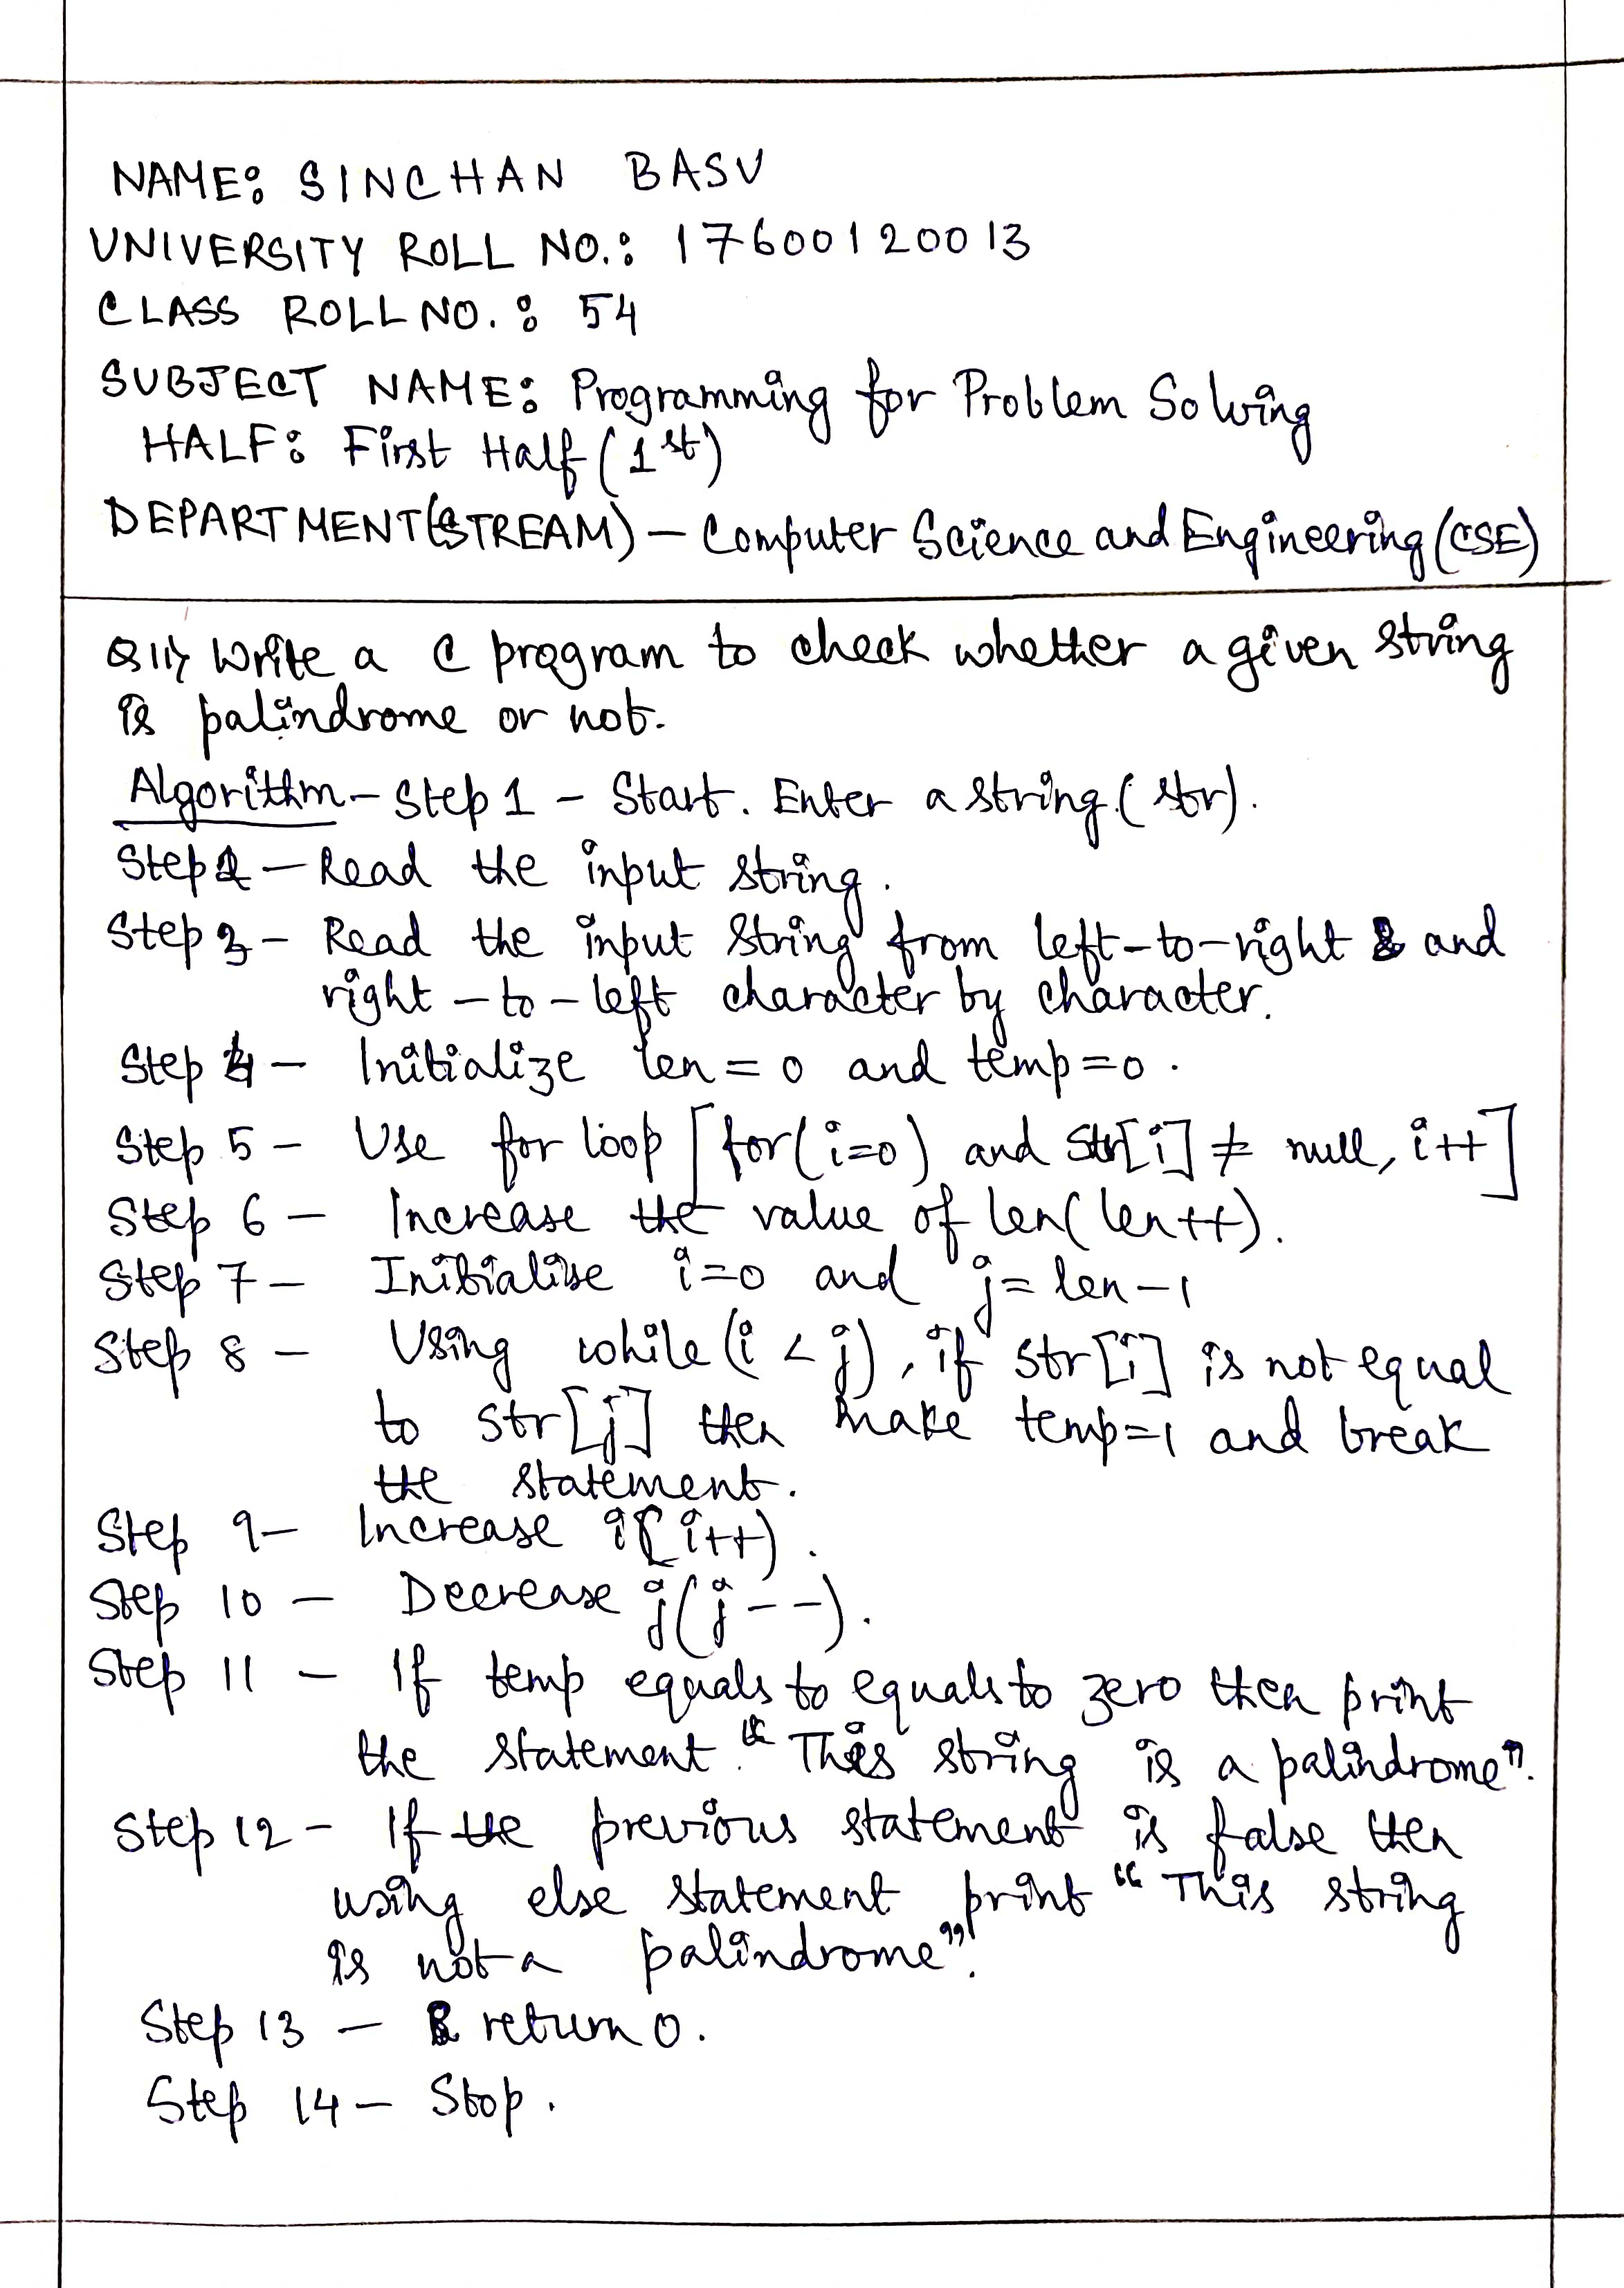 NAME: SINCHAN BASU
UNIVERSITY ROLL NO.: 17600120013
CLASS ROLL NO. : 54
SUBJECT NAME: Programming for Problem Solving
HALF: First Half (1st)
DEPARTMENT(STREAM) – Computer Science and Engineering (CSE)
Q11) Write a C program to check whether a given string
is palindrome or not.
Algorithm – Step 1 – Start. Enter a string (str).
Step 2 – Read the input string.
Step 3 – Read the input string from left-to-right and
right-to-left character by character.
Step 4 – Initialize len = 0 and temp=0.
Step 5 – Use for loop [for(i=0) and str[i] ≠ null, i++]
Step 6 – Increase the value of len(len++).
Step 7 – Initialise i=0 and j= len-1
Step 8 – Using while (i < j), if str[i] is not equal
to str[j] then make temp=1 and break
the statement.
Step 9 – Increase i(i++).
Step 10 – Decrease j(j--).
Step 11 – If temp equals to equals to zero then print
the statement. "This string is a palindrome".
Step 12 – If the previous statement is false then
using else statement print "This string
is not a palindrome".
Step 13 – return 0.
Step 14 – Stop.